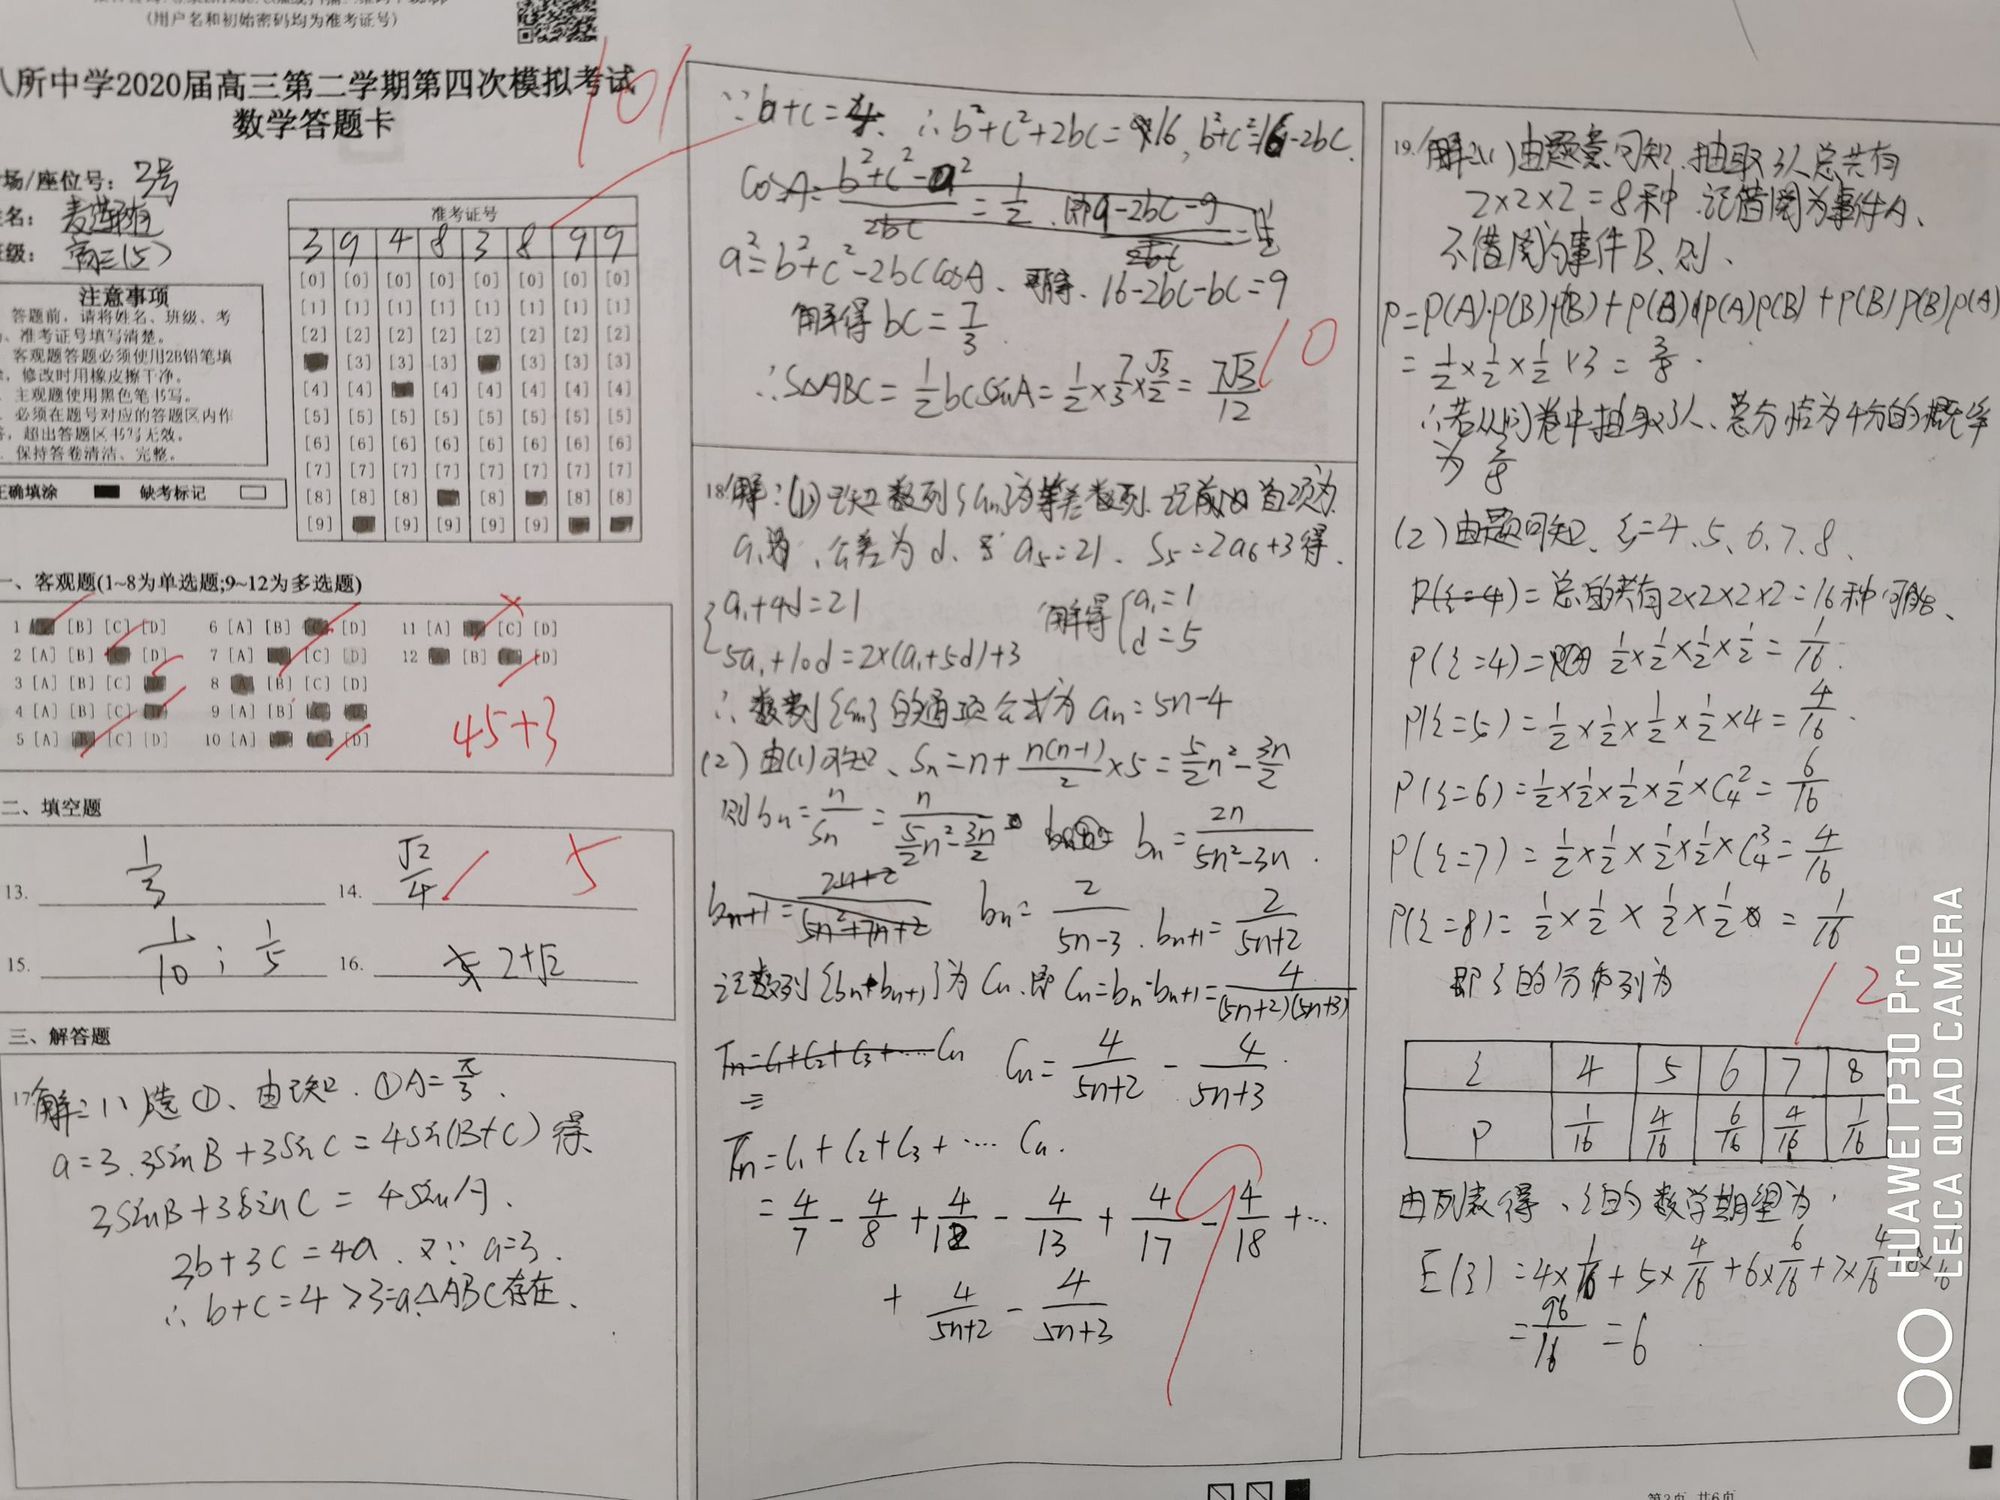 (用户名和初始密码均为准考证号)
八所中学2020届高三第二学期第四次模拟考试
数学答题卡
101
场/座位号: 2号
姓名:
班级: 高三(5)
准考证号
3 9 4 8 3 8 9 9
[0] [0] [0] [0] [0] [0] [0] [0]
[1] [1] [1] [1] [1] [1] [1] [1]
[2] [2] [2] [2] [2] [2] [2] [2]
[3] [3] [3] [3] [3] [3]
[4] [4] [4] [4] [4] [4] [4]
[5] [5] [5] [5] [5] [5] [5] [5]
[6] [6] [6] [6] [6] [6] [6] [6]
[7] [7] [7] [7] [7] [7] [7] [7]
[8] [8] [8] [8] [8] [8]
[9] [9] [9] [9] [9]
注意事项
答题前,请将姓名、班级、考
、准考证号填写清楚。
客观题答题必须使用2B铅笔填
,修改时用橡皮擦干净。
主观题使用黑色笔书写。
必须在题号对应的答题区内作
答,超出答题区书写无效。
保持答卷清洁、完整。
正确填涂 缺考标记
一、客观题(1~8为单选题;9~12为多选题)
1 [B] [C] [D] 6 [A] [B] [D] 11 [A] [C] [D]
2 [A] [B] [D] 7 [A] [C] [D] 12 [B] [D]
3 [A] [B] [C] 8 [B] [C] [D]
4 [A] [B] [C] 9 [A] [B]
5 [A] [C] [D] 10 [A] [D]
45+3
二、填空题
13. 1/3 14. √2/4 5
15. 1/10 ; 1/5 16. 2+√2
三、解答题
17.解:(1)选①、由已知、①A=π/3.
a=3.3sinB+3sinC=4sin(B+C)得
3sinB+3sinC=4sinA.
3b+3c=4a.又∵a=3.
∴b+c=4>3=a.△ABC存在.
∵b+c=4. ∴b²+c²+2bc=16, b²+c²=16-2bc.
cosA=b²+c²-a²/2bc=1/2.即9-2bc-9/2bc=1/2
a²=b²+c²-2bccosA、可得、16-2bc-bc=9
解得bc=7/3.
∴S△ABC=1/2bcsinA=1/2×7/3×√3/2=7√3/12
10
18.解:(1)已知数列{an}为等差数列.记首项为
a₁、公差为d、a₅=21、S₅=2a₆+3得.
{a₁+4d=21 解得{a₁=1
5a₁+10d=2×(a₁+5d)+3 d=5
∴数列{an}的通项公式为an=5n-4
(2)由(1)可知、Sn=n+n(n-1)/2×5=5/2n²-3n/2
则bn=n/Sn=n/(5/2n²-3n/2) bn=2n/(5n²-3n).
bn+1=2n+2/5n²+7n+2 bn=2/(5n-3).bn+1=2/(5n+2)
记数列{bn·bn+1}为Cn.即Cn=bn·bn+1=4/(5n+2)(5n+3)
Tn=C₁+C₂+C₃+……Cn Cn=4/(5n+2)-4/(5n+3).
Tn=C₁+C₂+C₃+……Cn.
=4/7-4/8+4/12-4/13+4/17-4/18+…
+4/(5n+2)-4/(5n+3)
9
19.解:(1)由题意可知.抽取3人总共有
2×2×2=8种.记借阅为事件A、
不借阅为事件B、则、
P=P(A)·P(B)P(B)+P(B)P(A)P(B)+P(B)P(B)P(A)
=1/2×1/2×1/2×3=3/8.
∴若从问卷中抽取3人、总分恰为4分的概率
为3/8
(2)由题可知、ξ=4、5、6、7、8、
P(ξ=4)=总的共有2×2×2×2=16种可能、
P(ξ=4)=1/2×1/2×1/2×1/2=1/16.
P(ξ=5)=1/2×1/2×1/2×1/2×4=4/16.
P(ξ=6)=1/2×1/2×1/2×1/2×C₄²=6/16
P(ξ=7)=1/2×1/2×1/2×1/2×C₄³=4/16
P(ξ=8)=1/2×1/2×1/2×1/2=1/16
即ξ的分布列为
12
ξ 4 5 6 7 8
P 1/16 4/16 6/16 4/16 1/16
由列表得、ξ的数学期望为.
E(ξ)=4×1/16+5×4/16+6×6/16+7×4/16
=96/16=6
第2页 共6页
HUAWEI P30 Pro
LEICA QUAD CAMERA